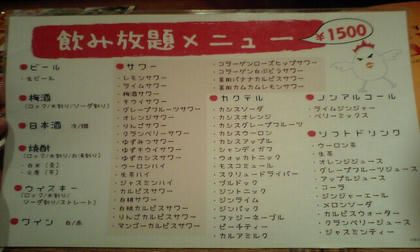 飲み放題メニュー
¥1500
●ビール
・生ビール
●梅酒
(ロック/水割り/ソーダ割り)
●日本酒 冷/燗
●焼酎
(ロック/水割り/お湯割り)
・白水(麦)
●ウィスキー
(ロック/水割り/
ソーダ割り/ストレート)
●ワイン 白/赤
●サワー
・レモンサワー
・ライムサワー
・梅酒サワー
・キウイサワー
・グレープフルーツサワー
・オレンジサワー
・りんごサワー
・クランベリーサワー
・ゆずみつサワー
・ゆずキウイサワー
・ゆずカシスサワー
・ウーロンハイ
・生茶ハイ
・ジャスミンハイ
・カルピスサワー
・白桃サワー
・白桃カルピスサワー
・りんごカルピスサワー
・マンゴーカルピスサワー
・コラーゲンローズヒップサワー
・コラーゲン白ぶどうサワー
・豆酢バナナカルピスサワー
・豆酢カムカムレモンサワー
●カクテル
・カシスソーダ
・カシスオレンジ
・カシスグレープフルーツ
・カシスウーロン
・カシスアップル
・シャンディガフ
・ウォッカトニック
・モスコミュール
・スクリュードライバー
・ブルドック
・ジントニック
・ジンライム
・ジンバック
・ファジーネーブル
・ピーチティー
・カルアミルク
●ノンアルコール
・ライムジンジャー
・ベリーミックス
●ソフトドリンク
・ウーロン茶
・生茶
・オレンジジュース
・グレープフルーツジュース
・アップルジュース
・コーラ
・ジンジャーエール
・メロンソーダ
・カルピスウォーター
・クランベリージュース
・ジャスミンティー